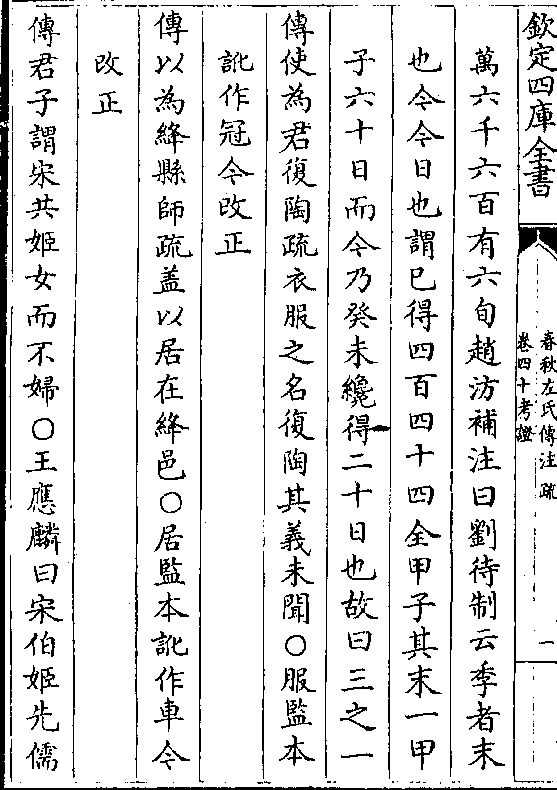 欽定四庫全書
春秋左氏傳注疏
卷四十考證
一
萬六千六百有六旬趙汸補注曰劉待制云季者末
也今今日也謂已得四百四十四全甲子其末一甲
子六十日而今乃癸未纔得二十日也故曰三之一
傳使為君復陶疏衣服之名復陶其義未聞○服監本
訛作冠今改正
傳以為絳縣師疏盖以居在絳邑○居監本訛作車今
改正
傳君子謂宋共姬女而不婦○王應麟曰宋伯姬先儒